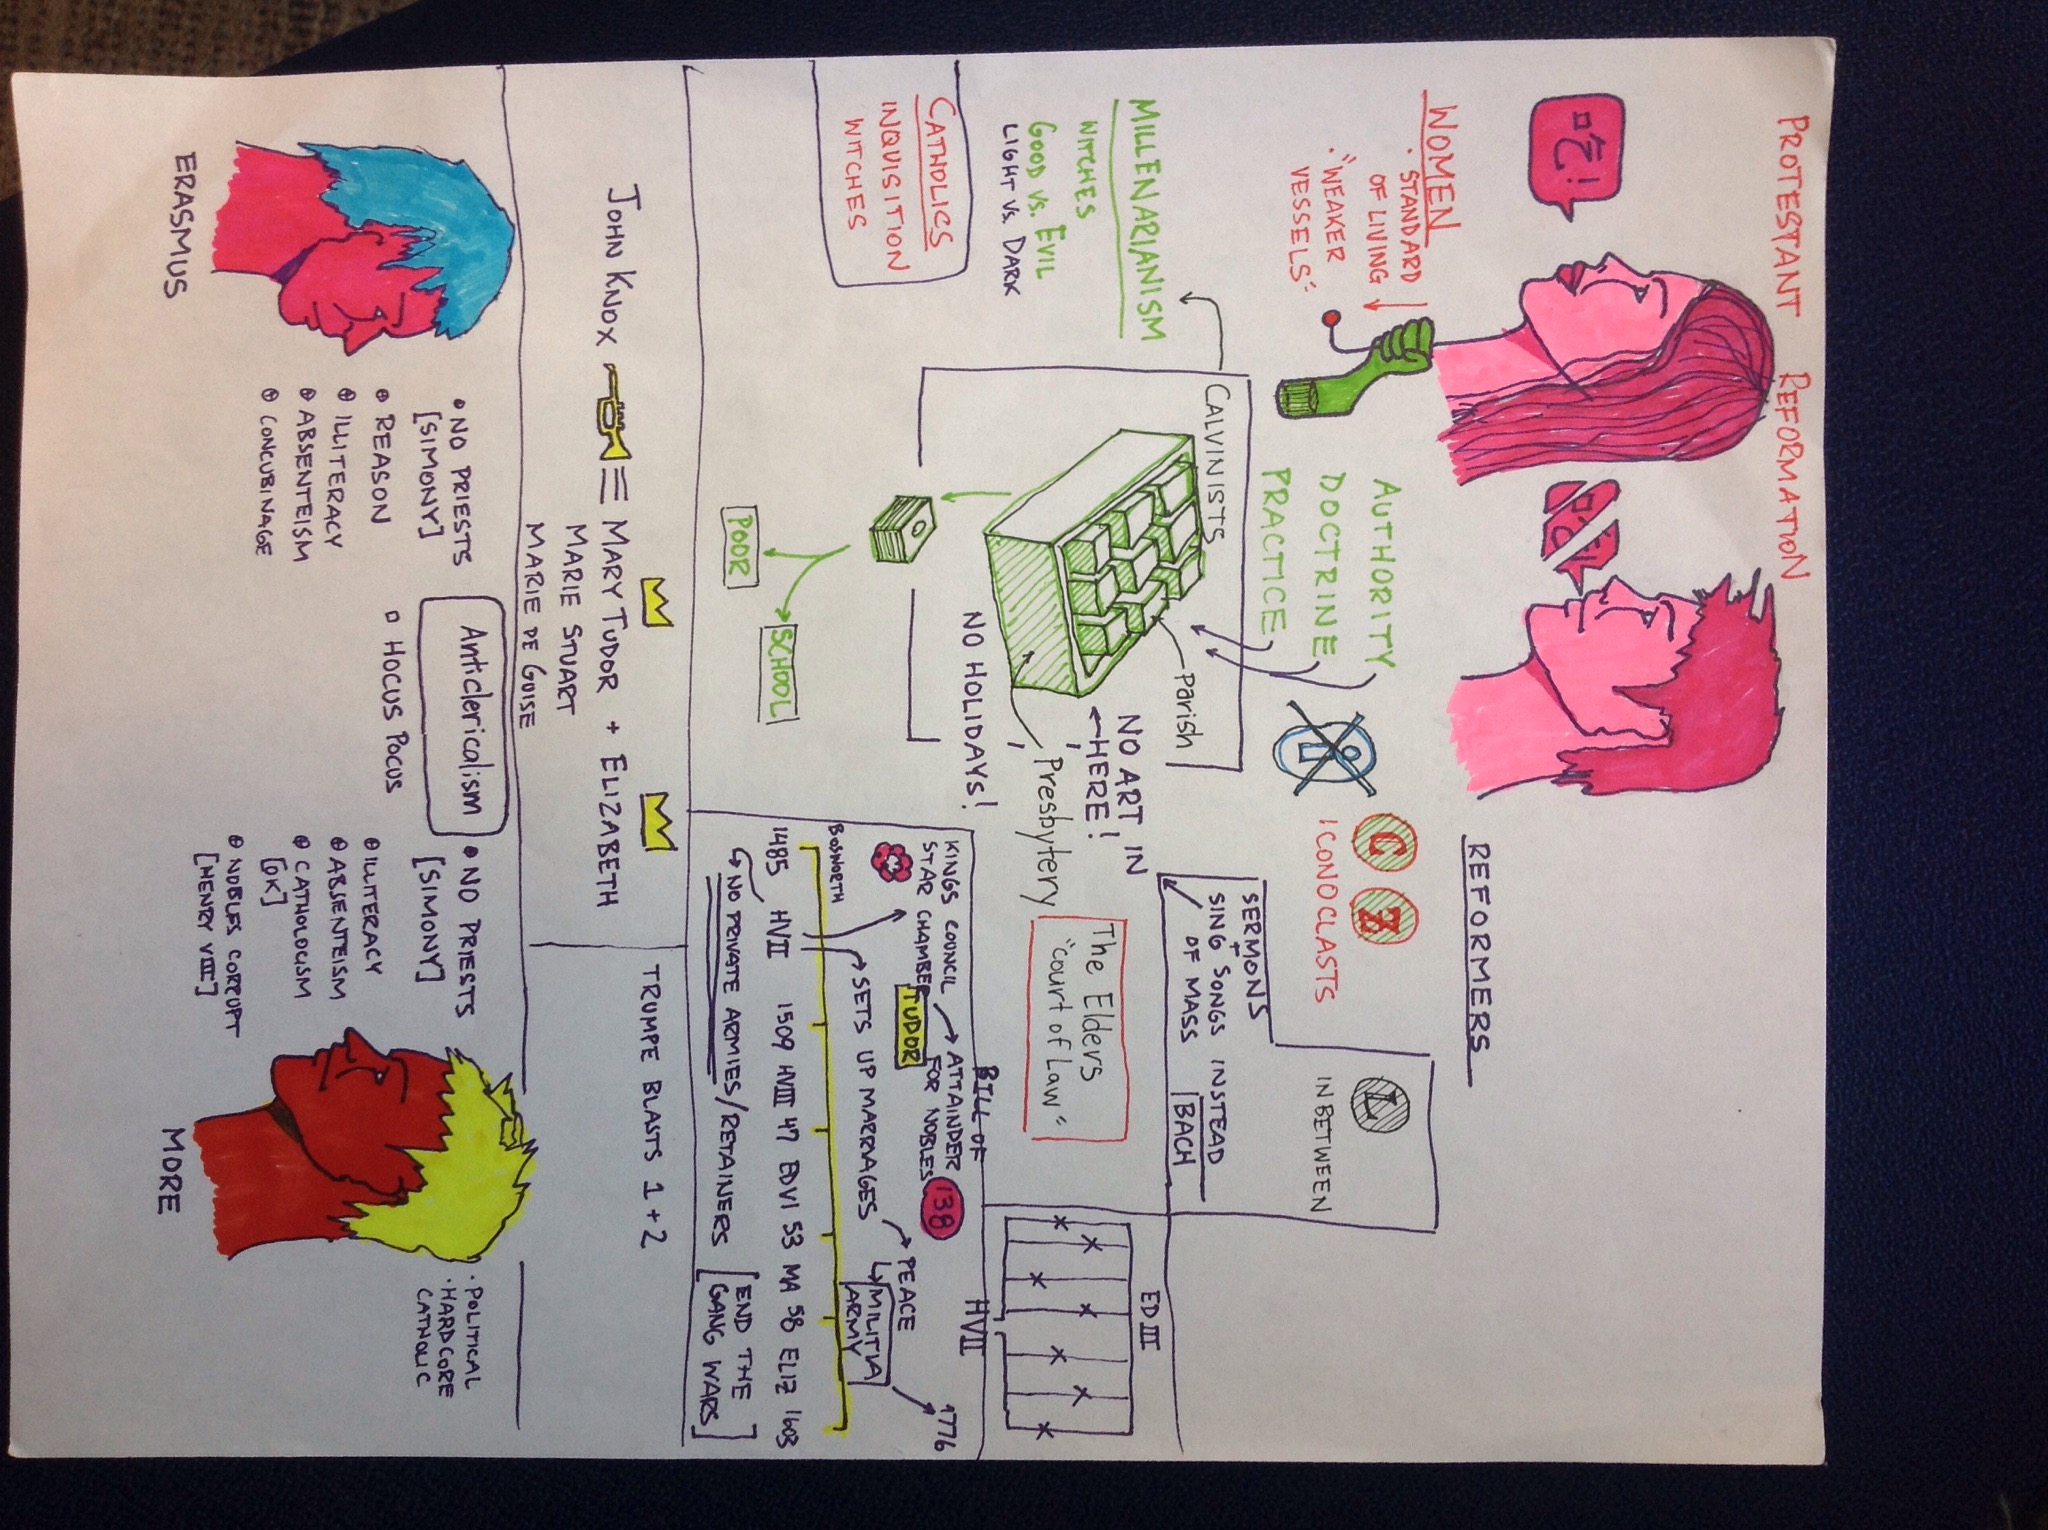 PROTESTANT REFORMATION
WOMEN
· STANDARD
OF LIVING
· "WEAKER
VESSELS"
REFORMERS
AUTHORITY
DOCTRINE
PRACTICE
C Z
ICONOCLASTS
L
IN BETWEEN
SERMONS
+
SING SONGS INSTEAD
OF MASS
BACH
MILLENARIANISM
WITCHES
GOOD VS. EVIL
LIGHT VS. DARK
CATHOLICS
INQUISITION
WITCHES
CALVINISTS
Parish
NO ART IN
HERE!
Presbytery
NO HOLIDAYS!
The Elders
"court of Law"
POOR
SCHOOL
ED III
HVII
KINGS COUNCIL
STAR CHAMBER
BILL OF
ATTAINDER
FOR NOBLES
138
TUDOR
SETS UP MARRIAGES
PEACE
MILITIA
ARMY
1776
BOSWORTH
1485 HVII 1509 HVIII 47 EDVI 53 MA 58 ELIZ 1603
NO PRIVATE ARMIES/RETAINERS
[END THE
GANG WARS]
JOHN KNOX = MARY TUDOR + ELIZABETH
MARIE STUART
MARIE DE GUISE
TRUMPE BLASTS 1 + 2
Anticlericalism
HOCUS POCUS
• NO PRIESTS
[SIMONY]
REASON
ILLITERACY
ABSENTEISM
CONCUBINAGE
ERASMUS
• NO PRIESTS
[SIMONY]
ILLITERACY
ABSENTEISM
CATHOLOCISM
[OK]
NOBLES CORRUPT
[HENRY VIII]
MORE
· POLITICAL
· HARDCORE
CATHOLIC